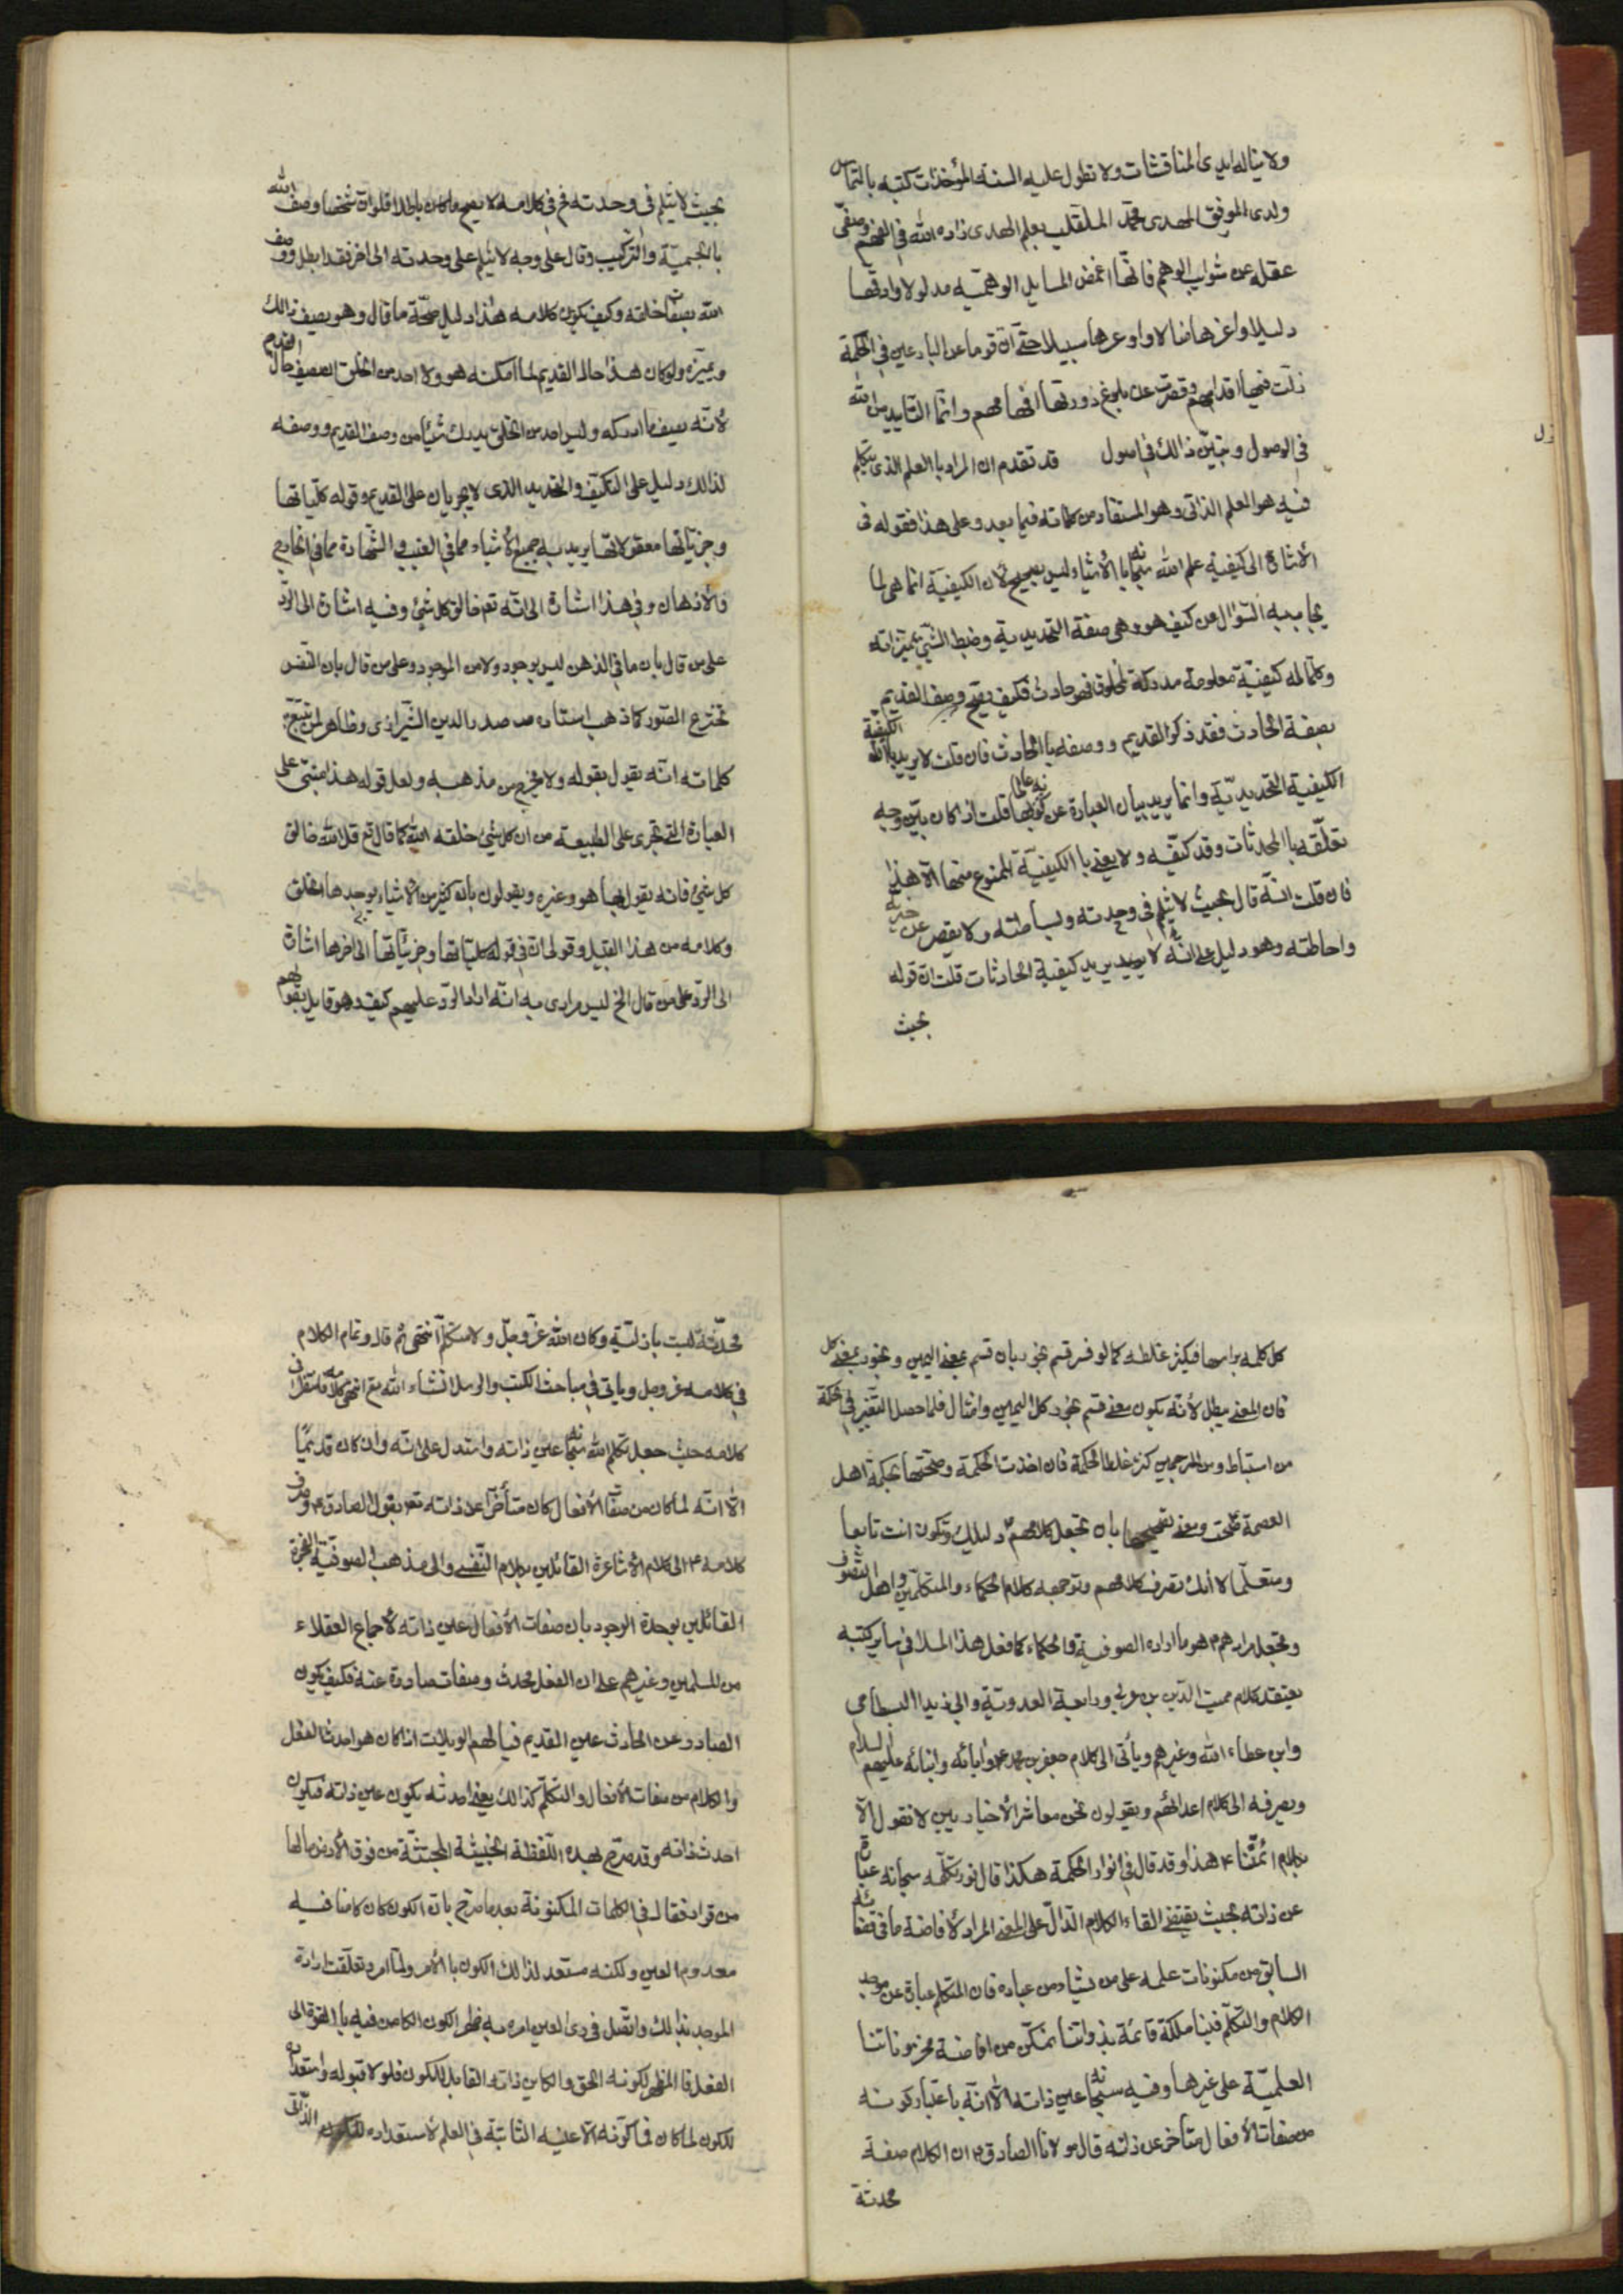 ولا يناله ايدى المناقشات ولا تطول عليه السنة المؤاخذات كتبه بالتماس
ولدى الموفق المهدى محمد الملقب بعلم الهدى زاده الله فى الفهم وصفى
عقله عن شوايب الوهم فانها اغمض المسايل الوهميه مدلولا وادقها
دليلا واعزها منالا واوعرها سبيلا حتى ان قوما من البارعين فى الحكمة
زلت فيها اقدامهم وقصرت عن بلوغ ذورتها افهامهم وانما التاييد من الله
فى الوصول ونبين ذالك فى اصول قد تقدم ان المراد با العلم الذى يتكلم
فيه هو العلم الذاتى وهو المستفاد من كلماته فيما بعد وعلى هذا فقوله فى
الأشارة الى كيفية علم الله سبحانه با الأشياء ليس بصحيح لان الكيفية انما هى لما
يجاب به السؤال عن كيف هو وهى صفة التحديدية وضبط الشئ بمميزاته
وكلما له كيفية معلومة مدركة لمخلوق فهو حادث فكيف يصح وصف القديم
بصفة الحادث فقد ذكر القديم ووصفه با الحادث فان قلت لا يريد با الكيفية
الكيفية التحديدية وانما يريد بيان العبارة عن كونه عالما بها قلت اذا كان يبين وجه
تعلقه با المحدثات وقد كيفه ولا يعنى با الكيفية الممنوع منها الا هذا
فان قلت انه قال بحيث لا ينثلم فى وحدته وبساطته ولا يقصر عن
واحاطته وهو دليل على انه لا يريد كيفية الحادثات قلت ان قوله
بحيث
بحيث لا ينثلم فى وحدته فى كلامه لا يصح ما كان باطلا فلو ان شخصا وصف الله
بالجسمية والتركيب وقال على وجه لا ينثلم على وحدته الى اخر فقد ابطل ووصف
الله بصفات خلقه وكيف يكون كلامه هذا دليل صحة ما قال وهو يصف ذالك
ويميزه ولو كان هذا حال القديم لما امكنه هو ولا احد من الخلق ان يصف حال القديم
لانه يصف ما ادركه وليس احد من الخلق يدرك شيئا من وصف القديم ووصفه
لذالك دليل على التكيف والتحديد الذى لا يجريان على القديم وقوله كلياتها
وجزئياتها معقولاتها يريد به جميع الأشياء مما فى الغيب والشهادة مما فى الخارج
والأذهان وفى هذا اشارة الى انه تعم خالق كل شئ وفيه اشارة الى الرد
على من قال بان ما فى الذهن ليس بوجود ولا من الموجود وعلى من قال بان النفس
تخترع الصور كما ذهب استاده صدر الدين الشيرازى وظاهر لمن تتبع
كلماته انه يقول بقوله ولا يخرج من مذهبه ولعل قوله هذا مبنى على
العبارة التى تجرى على الطبيعة من ان كل شئ خلقه الله كما قال تع قل الله خالق
كل شئ فانه يقول بها هو وغيره ويقولون بان كثير من الأشياء يوجدها الخلق
وكلامه من هذا القبيل وقولى ان فى قوله كلياتها وجزئياتها الى اخرها اشارة
الى الرد على من قال الخ ليس مرادى به انه اراد الرد عليهم كيف وهو قايل بقولهم
كل كلمه براسها فيكثر غلطه كما لو فسر قسم بخور بان قسم بمعنى اليمين وبخور بمعنى كل
فان المعنى يبطل لأنه يكون معنى قسم بخور كل اليمين وامثال فلما حصل التغير فى الحكمة
من استباط ومن المرجمين كثر غلطا لحكمة فان اخذت الحكمة وصححتها بحكمة اهل
العصمة صحت ومعنى تصحيحها بان تجعل كلامهم دليلك وتكون انت تابعا
ومتعلما لا انك تصرف كلامهم وتوجهه كلام الحكماء والمتكلمين واهل التصوف
وتجعل مرادهم هو ما اراده الصوفية والحكماء كما فعل هذا الملا فى ساير كتبه
يعتقد كلام مميت الدين بن عربى ورابعة العدوية وابى يزيد البسطامى
وابن عطاء الله وغيرهم ويأتى الى كلام جعفر بن محمد وابائه وابنائه عليهم السلام
ويصرفه الى كلام اعدائهم ويقولون نحن معاشر الأخباريين لا نقول الا
بكلام ائمتنا هذا وقد قال فى انوار الحكمة هكذا قال نور تكلمه سبحانه عبارة
عن ذاته بحيث يقتضى القاء الكلام الدال على المعنى المراد لأفاضة ما فى قضائه
السابق من مكنونات علمه على من يشاء من عباده فان المتكلم عبارة عن موجد
الكلام والتكلم فينا ملكة قائمة بذواتنا نتمكن من افاضة مخزوناتنا
العلمية على غيرها وفيه سبحانه عين ذاته الا انه باعتبار كونه
من صفات الأفعال متأخر عن ذاته قال مولانا الصادق ان الكلام صفة
محدثة
محدثة ليست بازلية وكان الله عز وجل ولا متكلم انتهى ثم قال وتمام الكلام
فى كلامه عز وجل وياتى فى مباحث الكتب والرسل انشاء الله تع انتهى كلامه
كلامه حيث جعل تكلم الله سبحانه عين ذاته واستدل على انه وان كان قديما
الا انه لما كان من صفات الأفعال كان متأخرا عن ذاته تعم بقول الصادق وصرف
كلامه الى كلام الأشاعرة القائلين بكلام النفسى والى مذهب الصوفية
القائلين بوحدة الوجود بان صفات الأفعال عين ذاته لأجماع العقلاء
من المسلمين وغيرهم على ان الفعل محدث وصفات صادرة عنه فكيف يكون
الصادر عن الحادث عين القديم فيا لهم الويلات اذا كان هو احدث الفعل
والكلام من صفات الأفعال والتكلم كذالك يعنى احدثه يكون عين ذاته فيكون
احدث ذاته وقد صرح بهذه اللفظة الخبيثة المجتثة من فوق الأرض ما لها
من قرار فقال فى الكلمات المكنونة بعد ما صرح بان الكون كان كامنا فيه
معدوم العين ولكنه مستعد لذالك الكون با الأمر ولما امر وتعلقت ارادة
الموجد بذالك واتصل فى رأى العين امره به ظهر الكون الكامن فيه با القوة الى
الفعل فا المظهر لكونه الحق والكاين ذاته القابل للكون فلولا قبوله واستعداده
للكون لما كان فما كونه الا عينه الثابتة فى العلم لأستعداده الذاتى